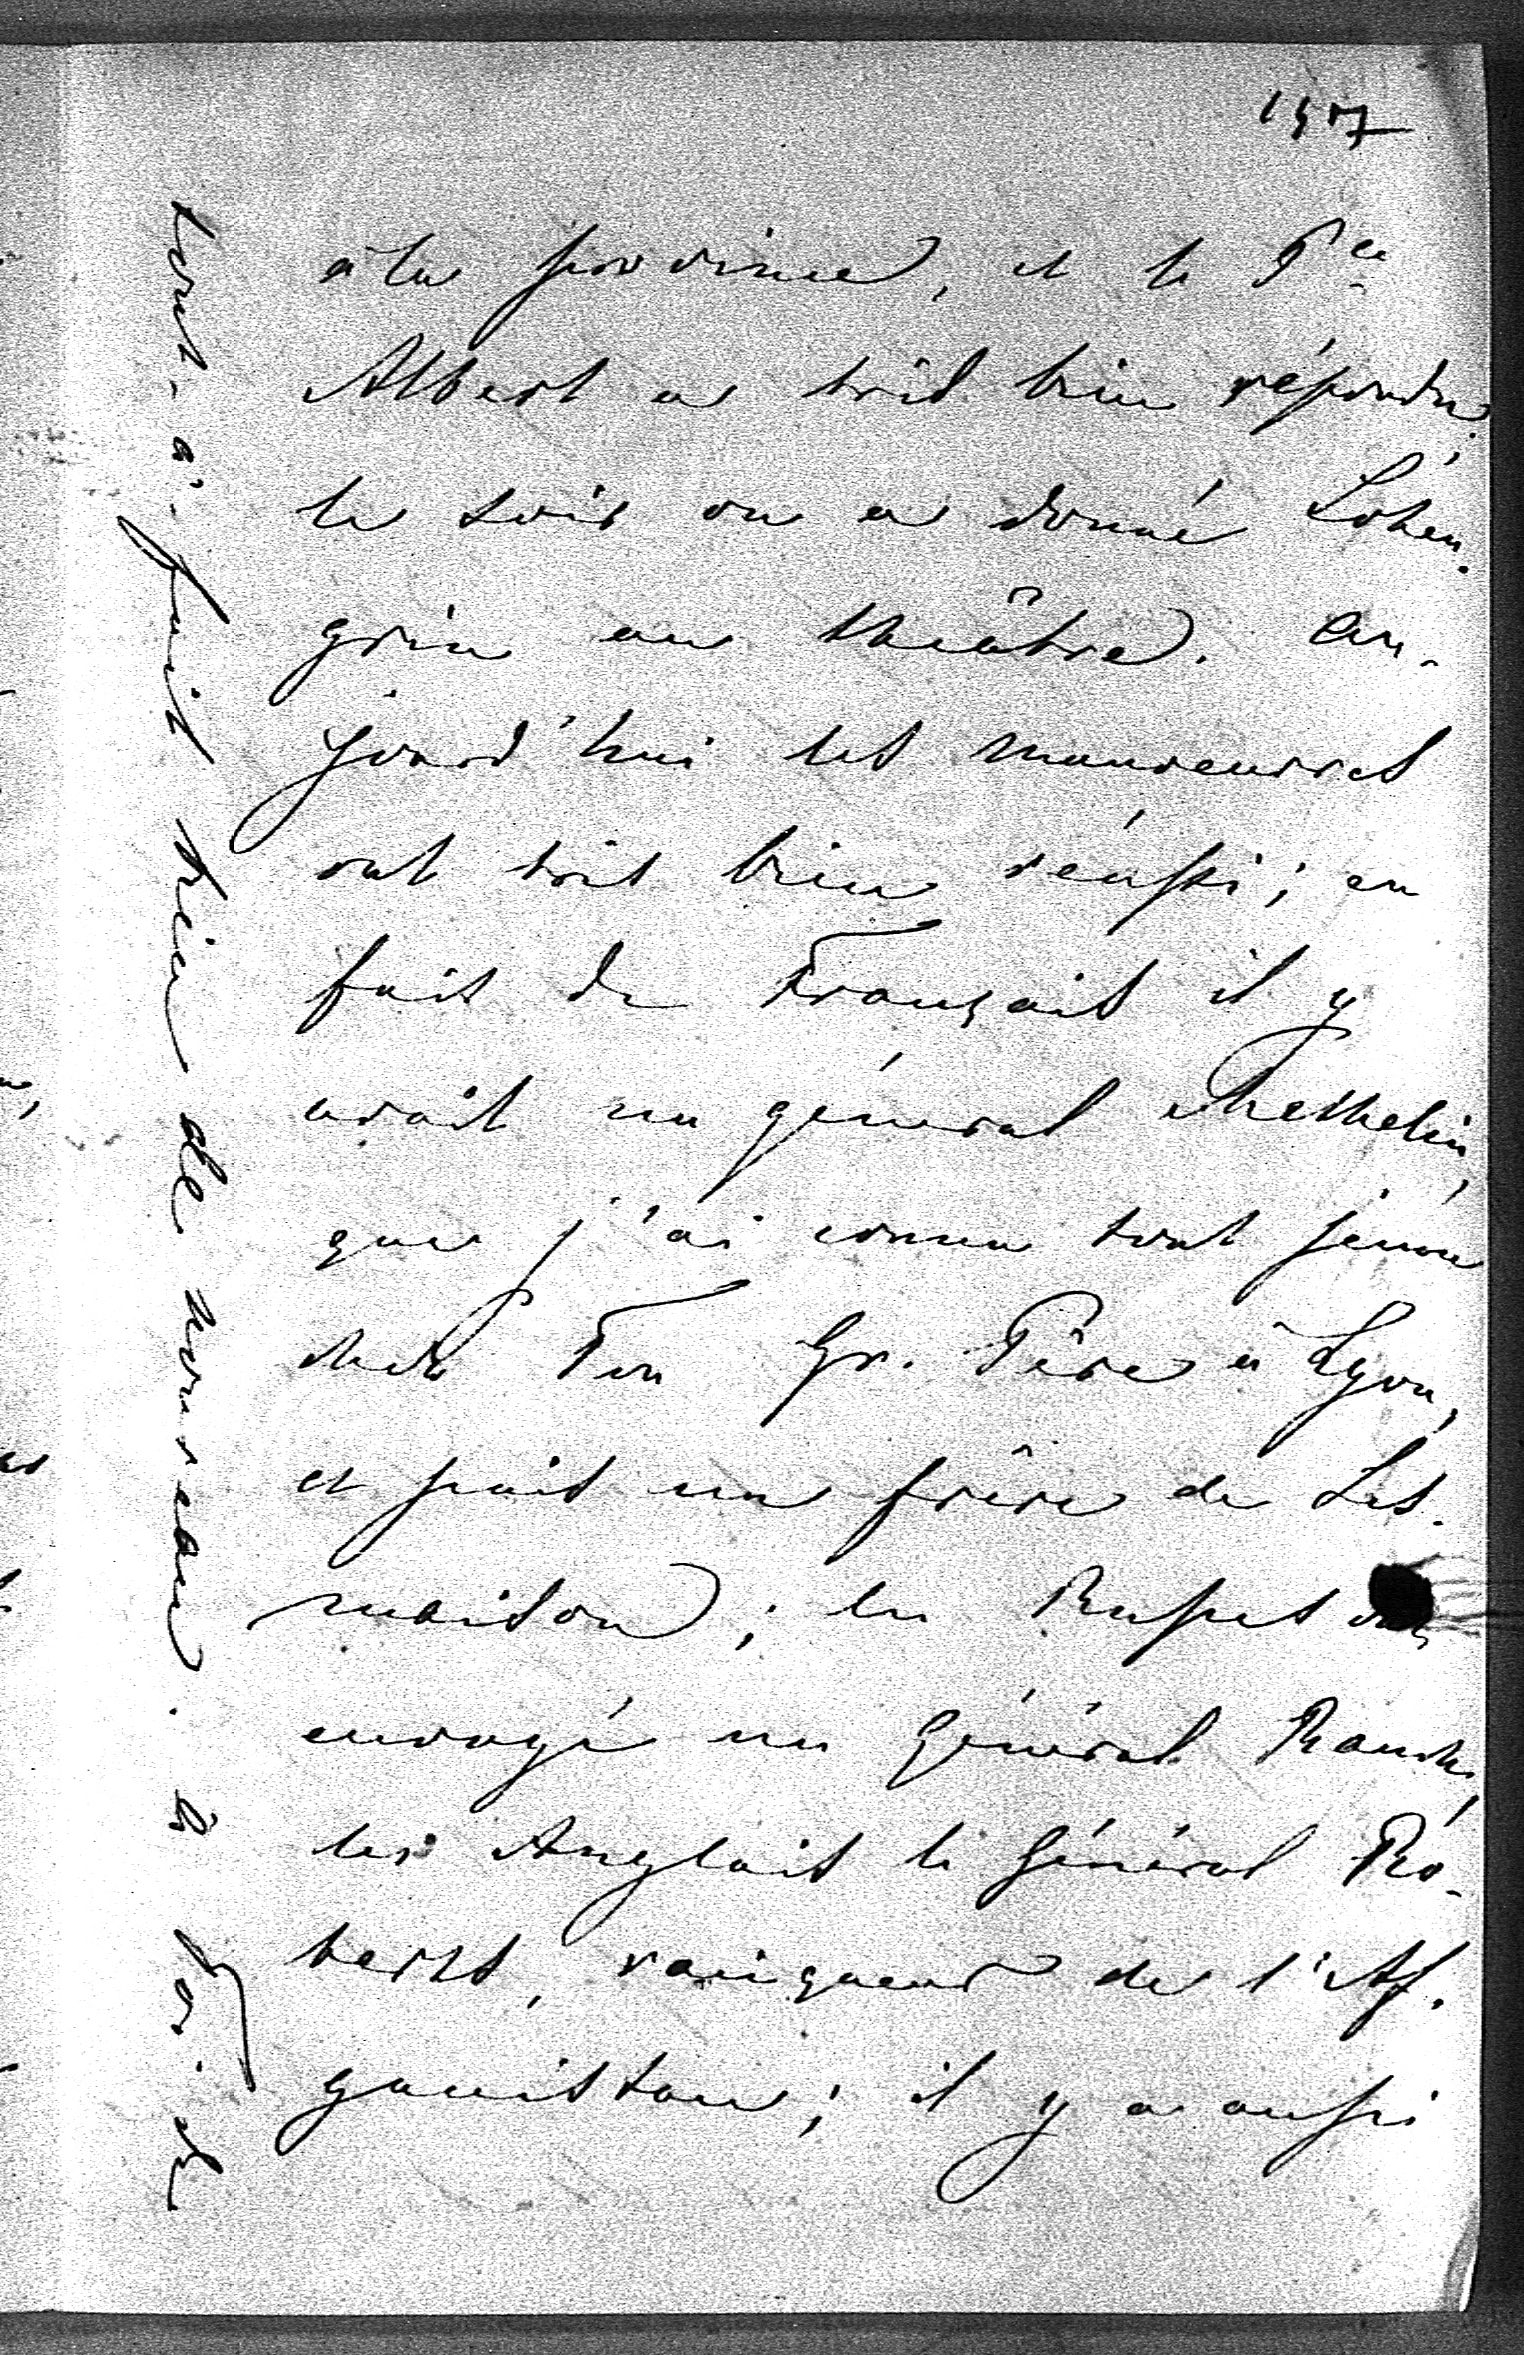 157
à la province, et le Pce
Albert a très bien répondu;
le soir on a donné Lohen-
grin au théâtre. Au-
jourd'hui les manœuvres
ont très bien réussi; en
fait de Français il y
avait un général Thethelin,
que j'ai connu tout jeune
chez Ton Gr. Père à Lyon,
et puis un frère de Les-
maison; les Russes ont
envoyé un Général Rauch,
les Anglais le Général Ro-
berts, vainqueur de l'Af-
ganistan; il y a aussi
tout-à-fait rien de nouveau. à